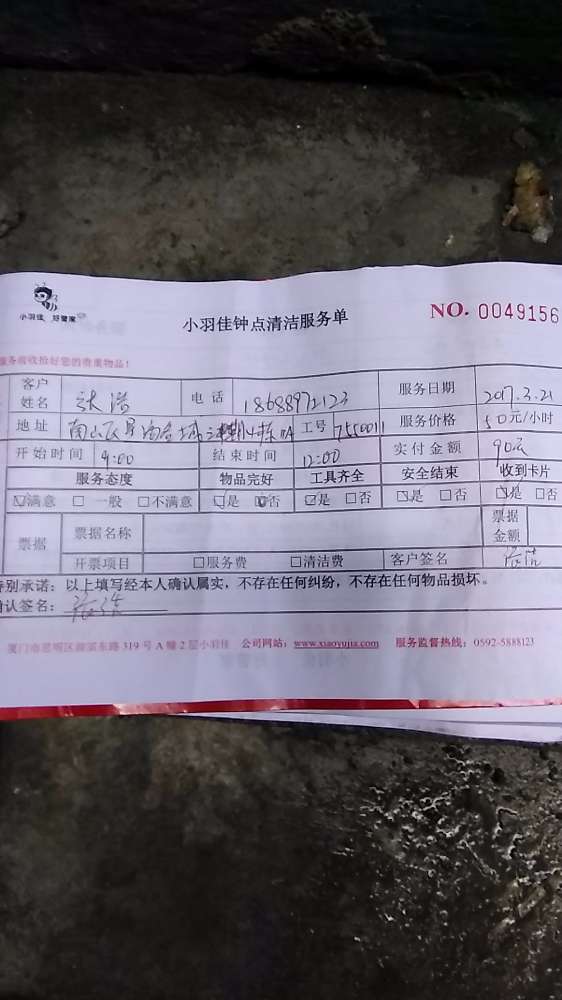 小羽佳 好管家
小羽佳钟点清洁服务单
NO. 0049156
服务前收拾好您的贵重物品!
客户姓名 电话 18688972123 服务日期 2017.3.21
地址 南山区 工号 7550011 服务价格 50元/小时
开始时间 9:00 结束时间 12:00 实付金额 90元
服务态度 物品完好 工具齐全 安全结束 收到卡片
☑满意 □一般 □不满意 ☑是 □否 ☑是 □否 ☑是 □否 ☑是 □否
票据 票据名称 票据金额
开票项目 □服务费 □清洁费 客户签名
特别承诺:以上填写经本人确认属实,不存在任何纠纷,不存在任何物品损坏。
确认签名:
厦门市思明区 319号A幢2层小羽佳 公司网站:www.xiaoyujia.com 服务监督热线:0592-5888123